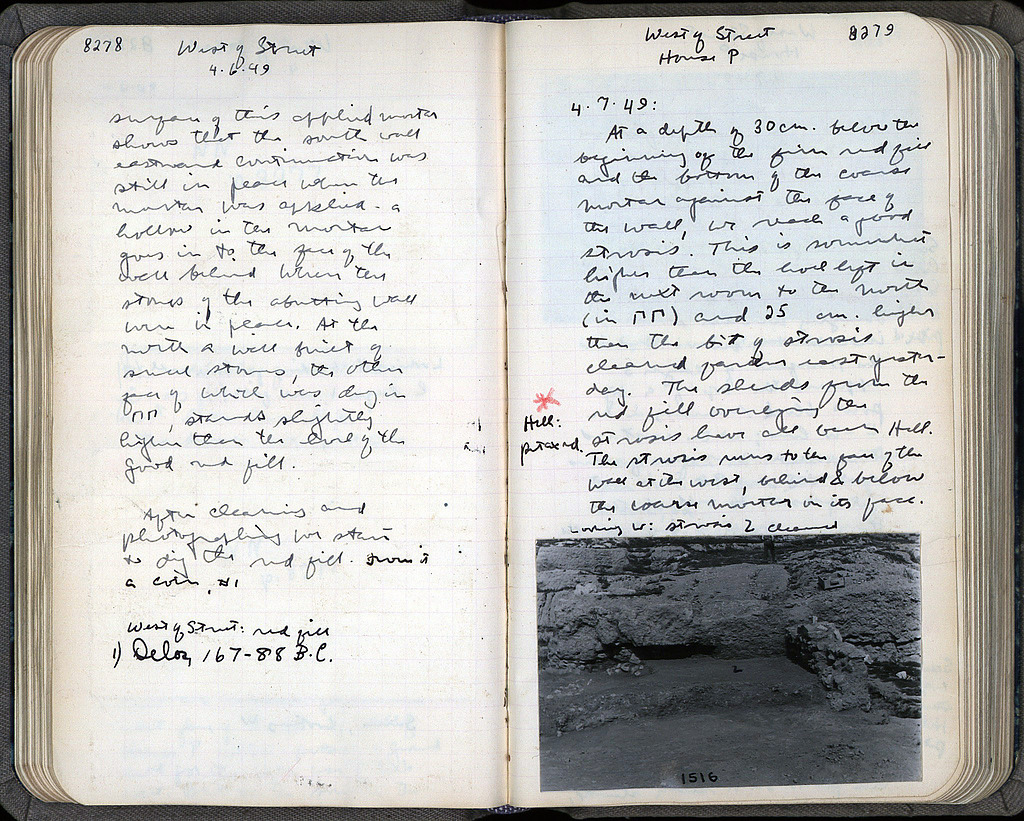 8278
West of Street
4.6.49
surface of this applied mortar
shows that the south wall
eastward continuation was
still in place when the
mortar was applied - a
hollow in the mortar
goes in to the face of the
wall behind when the
stones of the abutting wall
were in place. At the
north a wall built of
small stones, the other
face of which was dug in
ΠΠ, stands slightly
higher than the level of the
good red fill.
After cleaning and
photographing we start
to dig the red fill. From it
a coin, #1
West of Street: red fill
1) Delos, 167-88 B.C.
West of Street
House P
8279
4.7.49:
At a depth of 30 cm. below the
beginning of the firm red fill
and the bottom of the coarse
mortar against the face of
the wall, we reach a good
strosis. This is somewhat
higher than the level left in
the next room to the north
(in ΠΠ) and 25 cm. higher
than the bit of strosis
cleared farther east yester-
day. The sherds from the
red fill overlying the
strosis have all been Hell.
The strosis runs to the face of the
wall at the west, behind & below
the coarse mortar in its face.
Hell:
Looking W: strosis 2 cleaned
2
1516